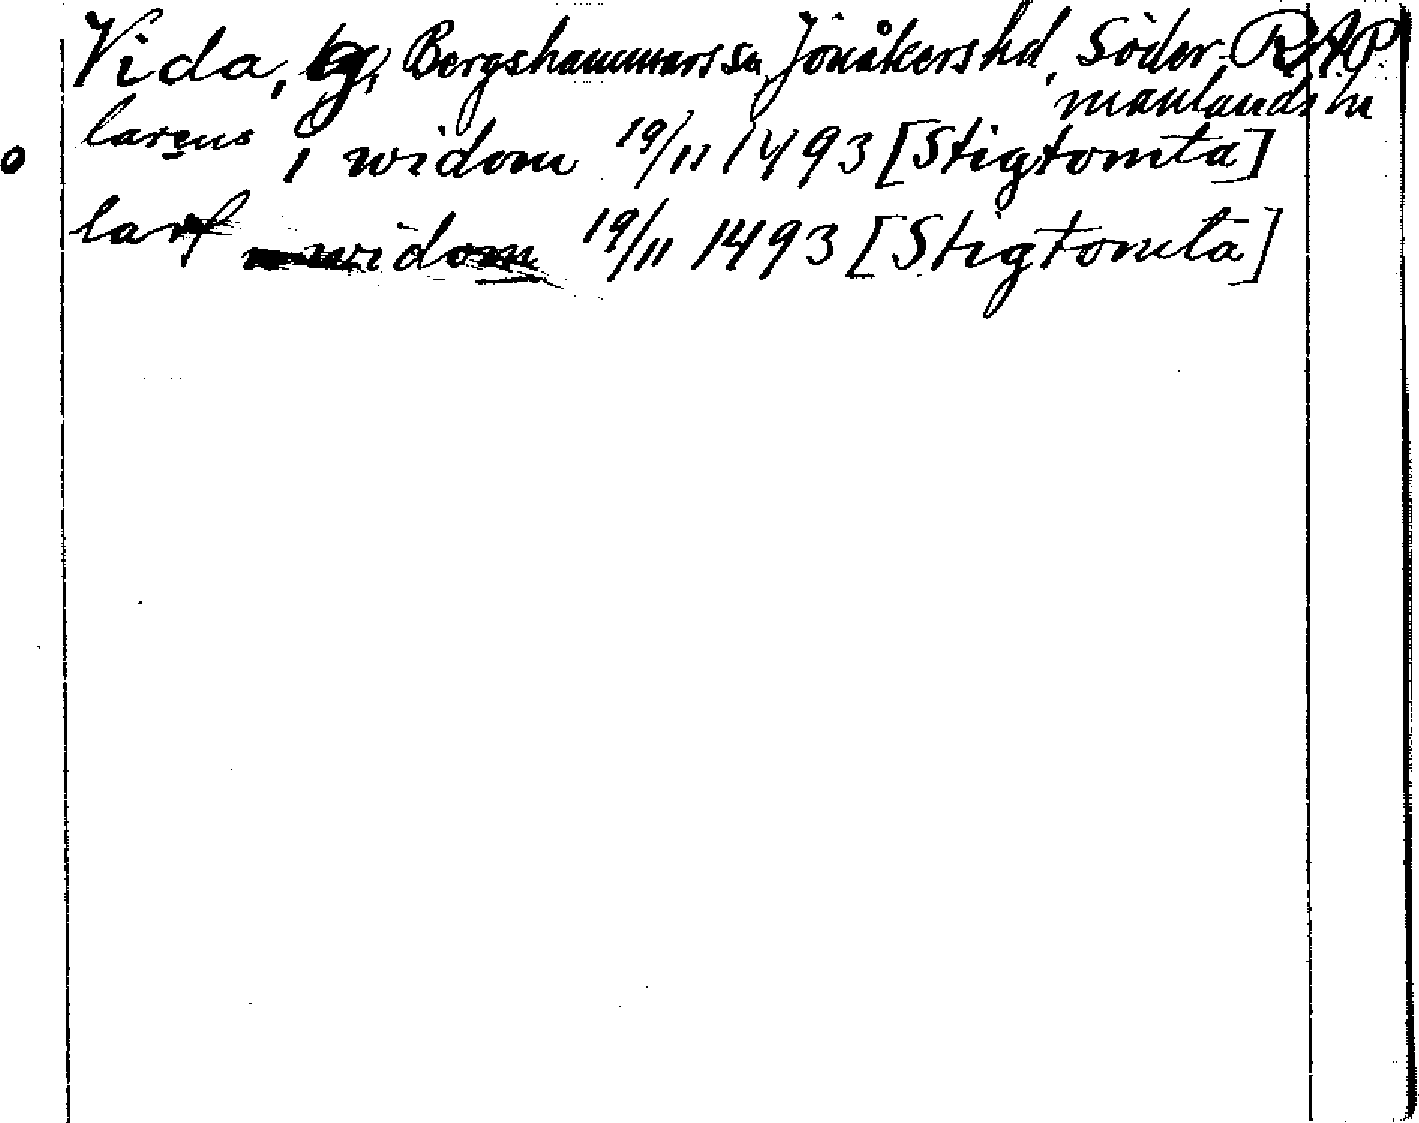 Vida, by, Bergshammars sn, Jönåkers hd, Söder- RAP
manlands ln
o larens i widom 19/11 1493 [Stigtomta]
larf widom 19/11 1493 [Stigtomta]